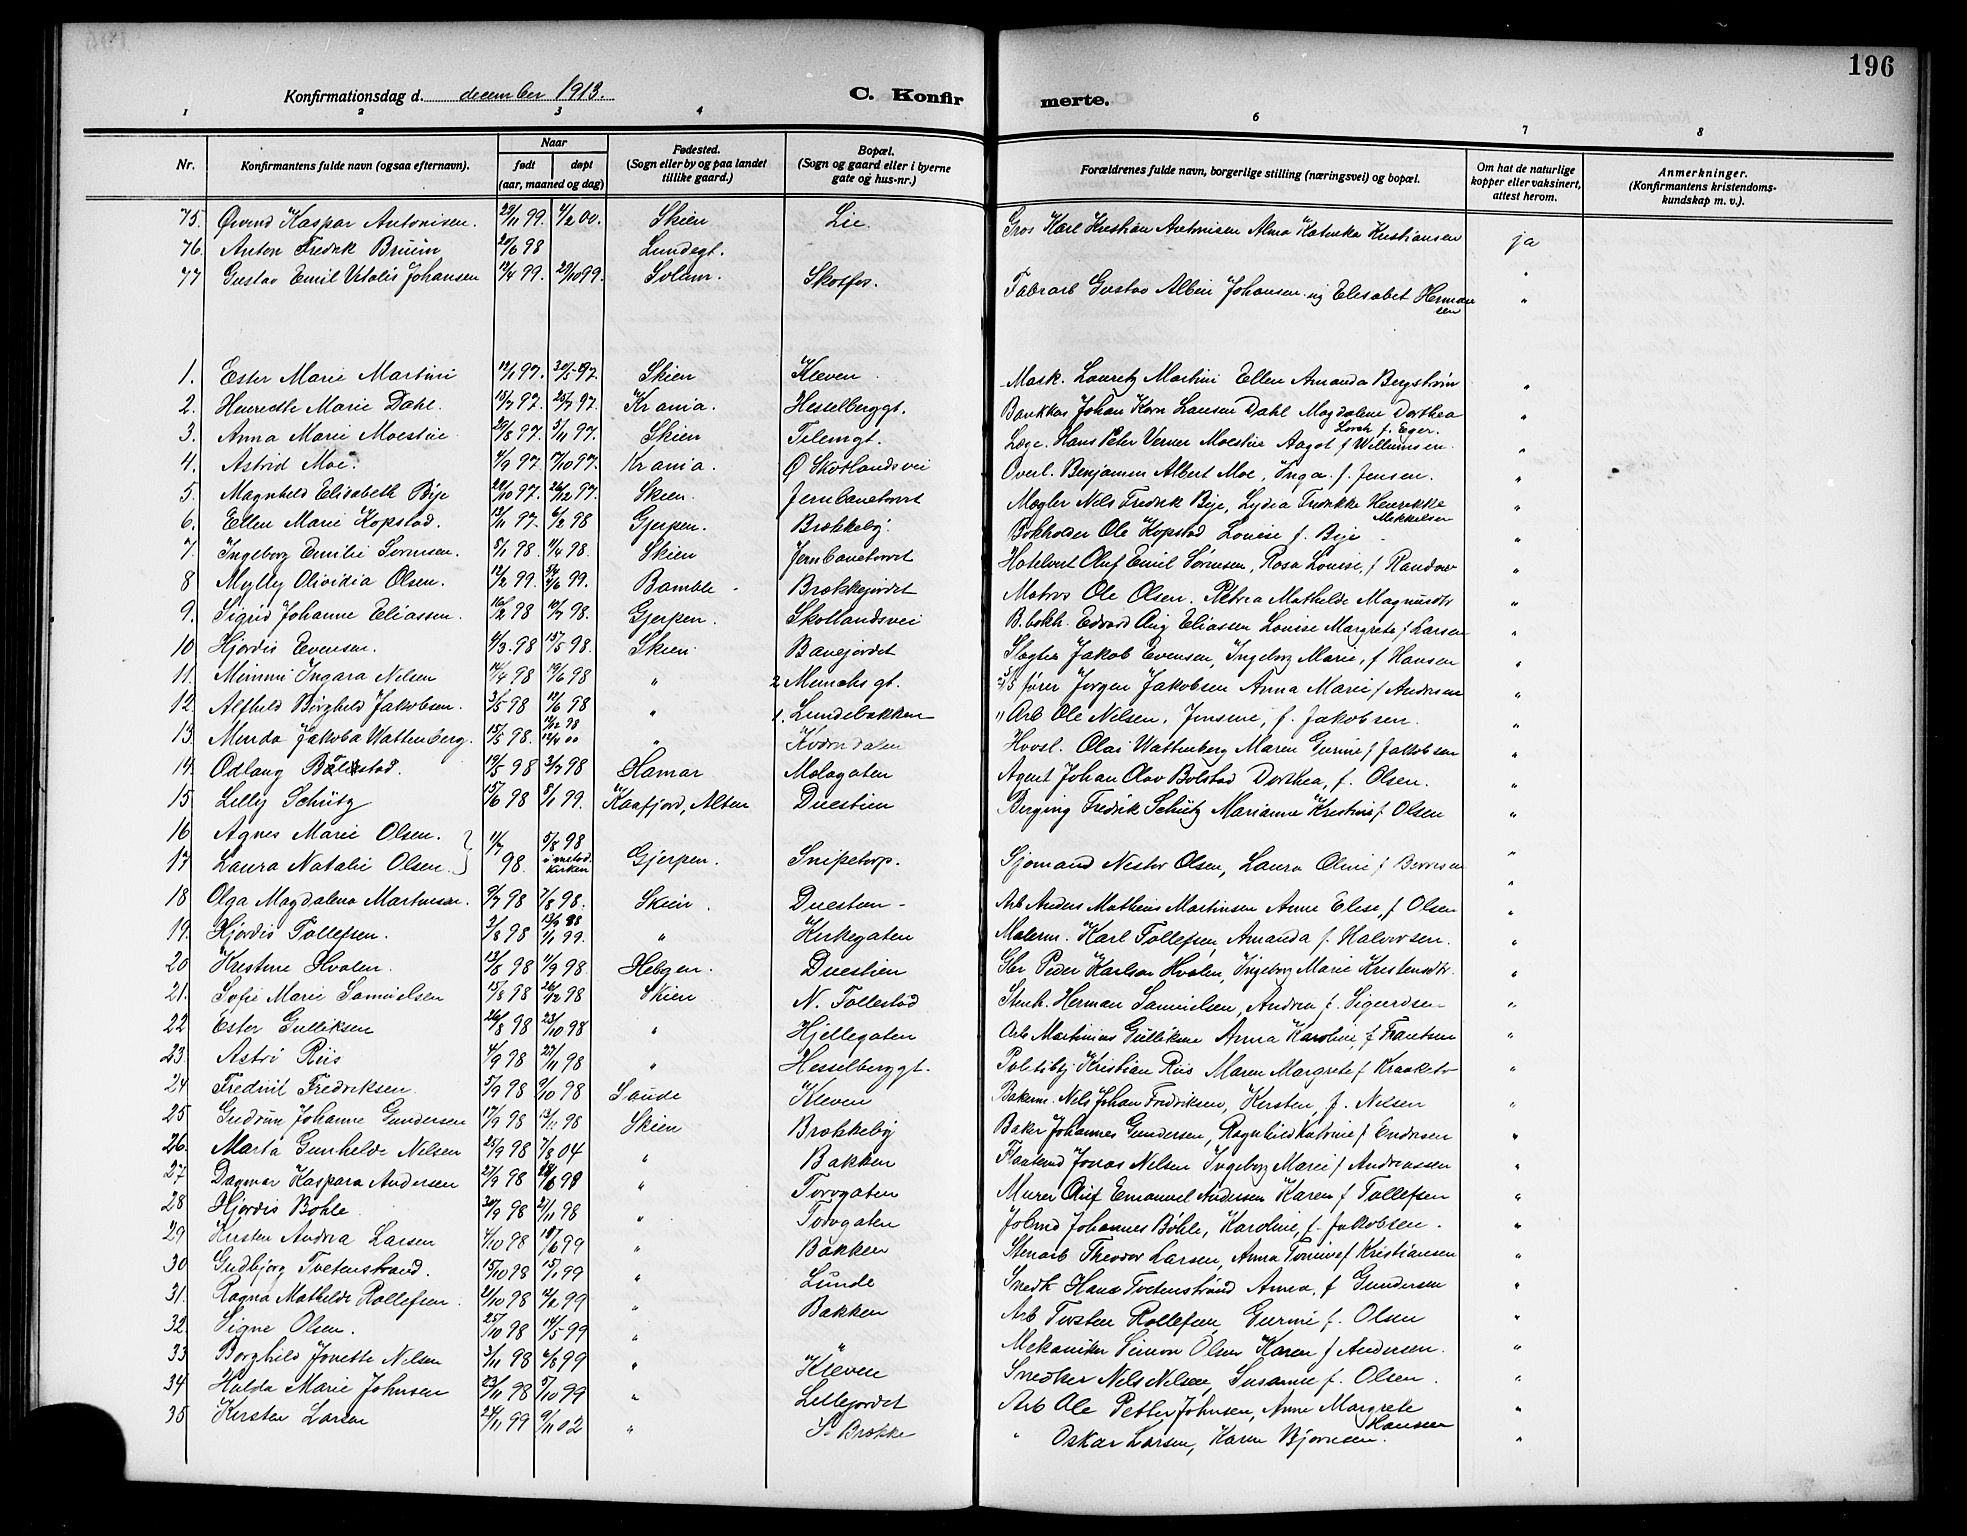 196
Konfirmationsdag d. december 1913. C. Konfir merte.
1 2 3 4 6 7 8
Nr. Konfirmantens fulde navn (ogsaa efternavn). Naar født døpt (aar, maaned og dag) Fødested. (Sogn eller by og paa landet tillike gaard.) Bopæl. (Sogn og gaard eller i byerne gate og hus-nr.) Forældrenes fulde navn, borgerlige stilling (næringsvei) og bopæl. Om hat de naturlige kopper eller vaksinert, attest herom. Anmerkninger. (Konfirmantens kristendomskundskap m. v.).
75. Øivind Kaspar Antonisen. 29/11 99. 4/2 00. Skien Lie Gros Karl Kristian Antonisen Alma Katinka Kristiansen ja
76. Anton Fredrik Bruun 98 Lundegt. "
77 Gustav Emil Vitalis Johansen 12/4 99. 29/10 99. Solum. Skotfos. Fabrarb Gustav Albin Johansen og Elisabet Hermansen "
1. Ester Marie Martini 12/1 97. 30/5 97. Skien Kleven Mask. Lauretz Martini Ellen Amanda Bergstrøm "
2. Henriette Marie Dahl. 15/7 97. 25/7 97. Krania. Hesselberggt. Bankkas Johan Korn Lausen Dahl Magdalene Dorthea Lorch f. Eger. "
3. Anna Marie Moestue 29/8 97. 5/11 97. Skien Telemgt. Læge. Hans Peter Verner Moestue Aagot f Willumsen. "
4. Astrid Moe. 4/9 97. 17/10 97. Krania. Ø Skotlandsvei Overl. Benjamin Albert Moe, Inga f. Jensen. "
5. Magnhild Elisabeth Bije 28/10 97. 26/12 97. Skien. Jernbanetorvet Mægler Nels Fredrik Bije, Lydia Fredrikke Henrikke Mikkelsen "
6. Ellen Marie Kopstad. 13/11 97. 6/2 98 Gjerpen. Brekkeby. Bokholder Ole Kopstad Louise f. Bije "
7. Ingeborg Emilie Sørensen. 5/1 98. 11/4 98. Skien Jernbanetorvet Hotelvert Oluf Emil Sørensen, Rosa Louise, f Randow "
8 Mylly Olividia Olsen. 12/2 99. 4/6 99. Bamble Brekkejordet Matros Ole Olsen. Petrea Mathilde Magnusdtr "
9. Sigrid Johanne Eliassen. 16/2 98 10/7 98. Gjerpen. Skotlandsvei B.bokh. Edvard Aug Eliasen Louise Margrete f Larsen "
10 Hjørdis Evensen. 4/3 98 15/5 98. Skien Banejordet Slagter Jakob Evensen, Ingeborg Marie, f Hansen "
11. Mimmi Ingara Nelsen 14/4 98 19/6 98 " 2 Munchs gt. S/S fører Jørgen Jakobsen Anna Marie f Andersen "
12. Alfhild Borghild Jakobsen. 3/5 98 12/6 98 " 1. Lundebakken 1) Arb Ole Nelsen, Jensine, f. Jakobsen. "
13. Minda Jakoba Wattenberg. 15/5 98. 12/4 00 " Kverndalen Hovsl. Olai Wattenberg Maren Gurine f Jakobsen "
14. Odlaug Bolstad. 19/5 98 3/7 98 Hamar Mælagaten Agent Johan Olav Bolstad Dorthea, f. Olsen. "
15. Lilly Schütz 15/6 98 5/1 99. Kaafjord, Alten Duestien Berging Fredrik Schütz Marianne Kristine f Olsen "
16 Agnes Marie Olsen. 11/7 98. 5/8 98 i metod. kirken Gjerpen. Snipetorp. Sjømand Nestor Olsen, Laura Oline f Berntsen "
17. Laura Natalie Olsen. "
18 Olga Magdalena Martinsen. 9/7 98 7/8 98. Skien Duestien Arb Anders Mathias Martinsen Anne Elise, f Olsen "
19. Hjørdis Tollefsen. 3/8 98 1/1 99. " Kirkegaten Malerm. Karl Tollefsen, Amanda f. Halvorsen. "
20 Kristine Hvalen. 13/8 98 11/9 98. Helgen. Duestien Gbr Peder Karlsen Hvalen, Ingeborg Marie Kristensdtr. "
21. Sofie Marie Samuelsen 15/8 98 26/12 98 Skien N. Follestad Stenh. Herman Samuelsen, Andrea f. Sigurdsen "
22 Ester Gulliksen 26/8 98 23/10 98 " Hjellegaten Arb Martinius Gulliksen Anna Karoline, f Frantsen "
23. Astri Riis 4/9 98 27/11 98 " Hesselberggt. Politibtj Kristian Riis Maren Margrete f Kraaketo "
24 Fredrik Fredriksen 5/9 98 9/10 98 Saude Kleven Bakerm. Nels Johan Fredriksen, Kirsten, f. Nelsen "
25 Gudrun Johanne Gundersen 17/9 98 13/11 98 Skien Brekkeby Baker Johannes Gundersen, Ragnhild Katrine f Endresen "
26. Marta Gunhilde Nelsen 25/9 98 7/8 04 " Bakken Jonas Nelsen Ingeborg Marie f Andreassen "
27 Dagmar Kaspara Andersen 27/9 98 98 " Torvgaten Murer Oluf Emanuel Andersen Karen f Tollefsen "
28 Hjørdis Bøhle. 30/9 98 27/11 98 " Torvgaten Johannes Bøhle, Karoline, f. Jakobsen. "
29 Kirsten Andrea Larsen 4/10 98 18/6 99 " Bakken Stenarb Theodor Larsen, Anna Tomine f Kristiansen "
30 Gudbjørg Tvetenstrand. 15/10 98 15/1 99 " Lunde Snedk Hans Tvetenstrand Anna, f Gundersen "
31. Ragna Mathilde Rollefsen. 21/10 98 12/2 99 " Bakken Arb Torsten Rollefsen Gurine f. Olsen "
32. Signe Olsen. 25/10 98 14/5 99 " " Mekaniker Simon Olsen Karen f Andersen. "
33 Borghild Jonette Nelsen 3/11 98 6/8 99 " Kleven Snedker Nels Nelsen, Susanne f. Olsen. "
34 Hulda Marie Johnsen 23/11 98 5/10 99 " Lillejordet Arb Ole Petter Johnsen, Anne Margrete Hansen "
35 Kirsten Larsen 24/11 99 9/11 02 " S. Brekke " Oskar Larsen, Karen Bjørnsen. "